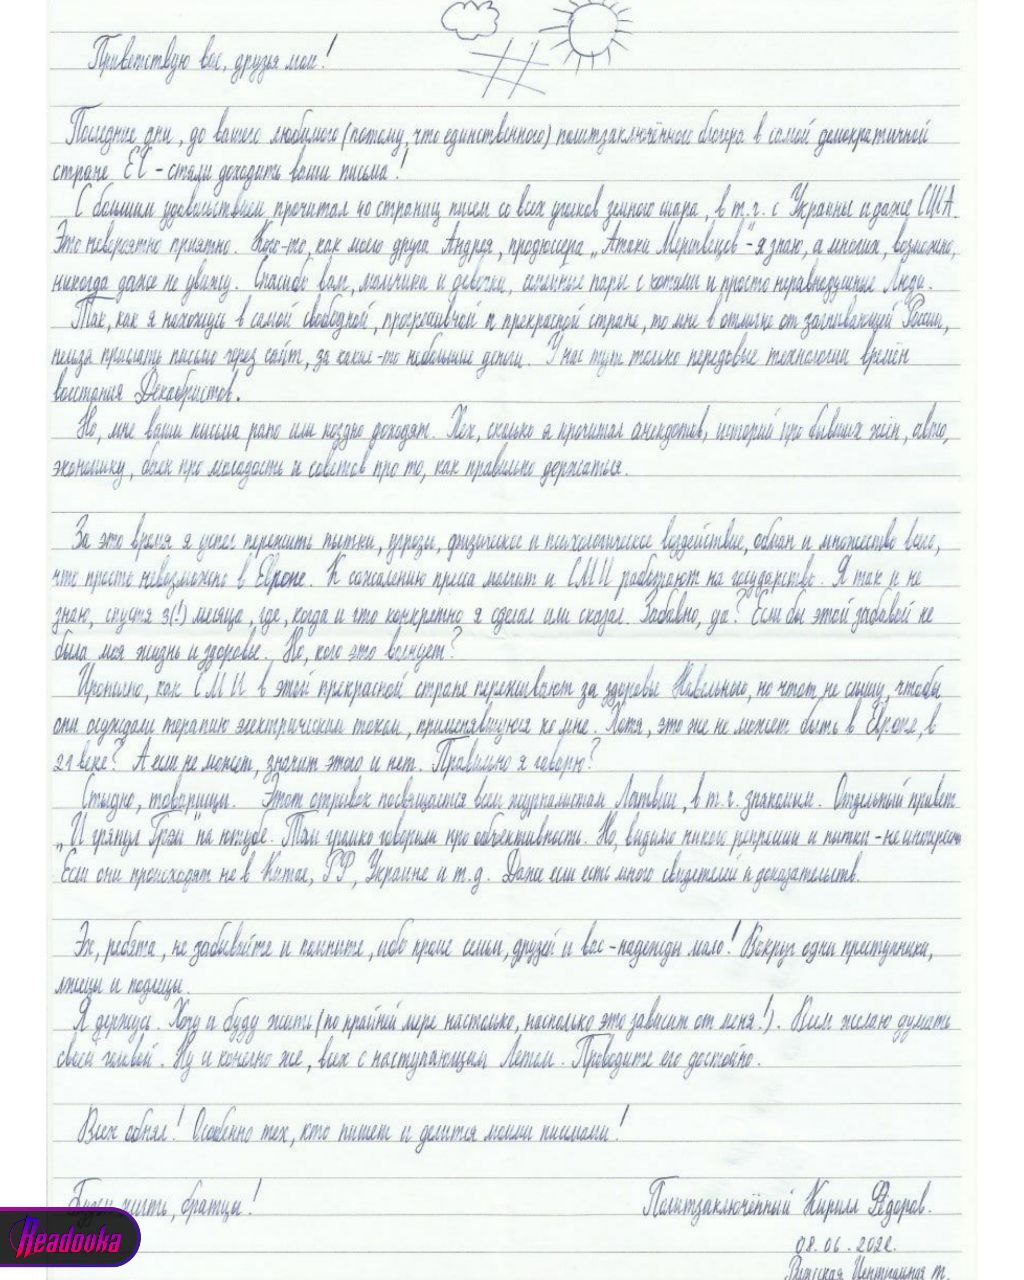 Приветствую вас, друзья мои!
Последние дни, до вашего любимого (потому, что единственного) политзаключённого блогера в самой демократичной
стране ЕС - стали доходить ваши письма!
С большим удовольствием прочитал 40 страниц писем со всех уголков земного шара, в т.ч. с Украины и даже США.
Это невероятно приятно. Кого-то, как моего друга Андрея, продюсера "Атаки Мертвецов" - я знаю, а многих, возможно,
никогда даже не увижу. Спасибо вам, мальчики и девочки, семейные пары с котами и просто неравнодушные люди.
Так, как я нахожусь в самой свободной, прогрессивной и прекрасной стране, то мне в отличие от загнивающей России,
нельзя прислать письмо через сайт, за какие-то небольшие деньги. У нас тут только передовые технологии времён
восстания Декабристов.
Но, мне ваши письма рано или поздно доходят. Хех, сколько я прочитал анекдотов, историй про бывших жён, авто,
экономику, баек про молодость и советов про то, как правильно держаться.
За это время я успел пережить пытки, угрозы, физическое и психологическое воздействие, обман и множество всего,
что просто невозможно в Европе. К сожалению пресса молчит и СМИ работают на государство. Я так и не
знаю, спустя 3(!) месяца, где, когда и что конкретно я сделал или сказал. Забавно, да? Если бы этой забавой не
была моя жизнь и здоровье. Но, кого это волнует?
Иронично, как СМИ в этой прекрасной стране переживают за здоровье Навального, но чтот не слышу, чтобы
они осуждали терапию электрическим током, применявшуюся ко мне. Хотя, это же не может быть в Европе, в
21 веке? А если не может, значит этого и нет. Правильно я говорю?
Стыдно, товарищи. Этот отрывок посвящается всем журналистам Латвии, в т.ч. знакомым. Отдельный привет
"И грянул Грэм" на ютубе. Там громко говорили про объективность. Но, видимо никого репрессии и пытки - не интересны
Если они происходят не в Китае, РФ, Украине и т.д. Даже если есть много свидетелей и доказательств.
Эх, ребята, не забывайте и помните, ибо кроме семьи, друзей и вас - надежды мало! Вокруг одни преступники,
лжецы и подлецы.
Я держусь. Хочу и буду жить (по крайней мере настолько, насколько это зависит от меня!). Всем желаю думать
своей головой. Ну и конечно же, всех с наступающим Летом. Проводите его достойно.
Всех обнял! Особенно тех, кто пишет и делится моими письмами!
Будем жить, братцы!
Политзаключённый Кирилл Фёдоров.
08.06.2022.
Рижская Центральная т.
Readovka